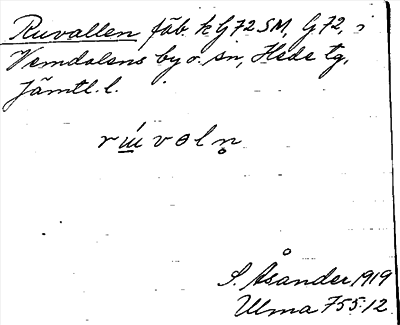 Ruvallen fäb. k G 72 SM, G 72, i
Vemdalens by o. sn, Hede tg,
Jämtl. l.
rúvoln̥
S. Åsander 1919
Ulma 755:12